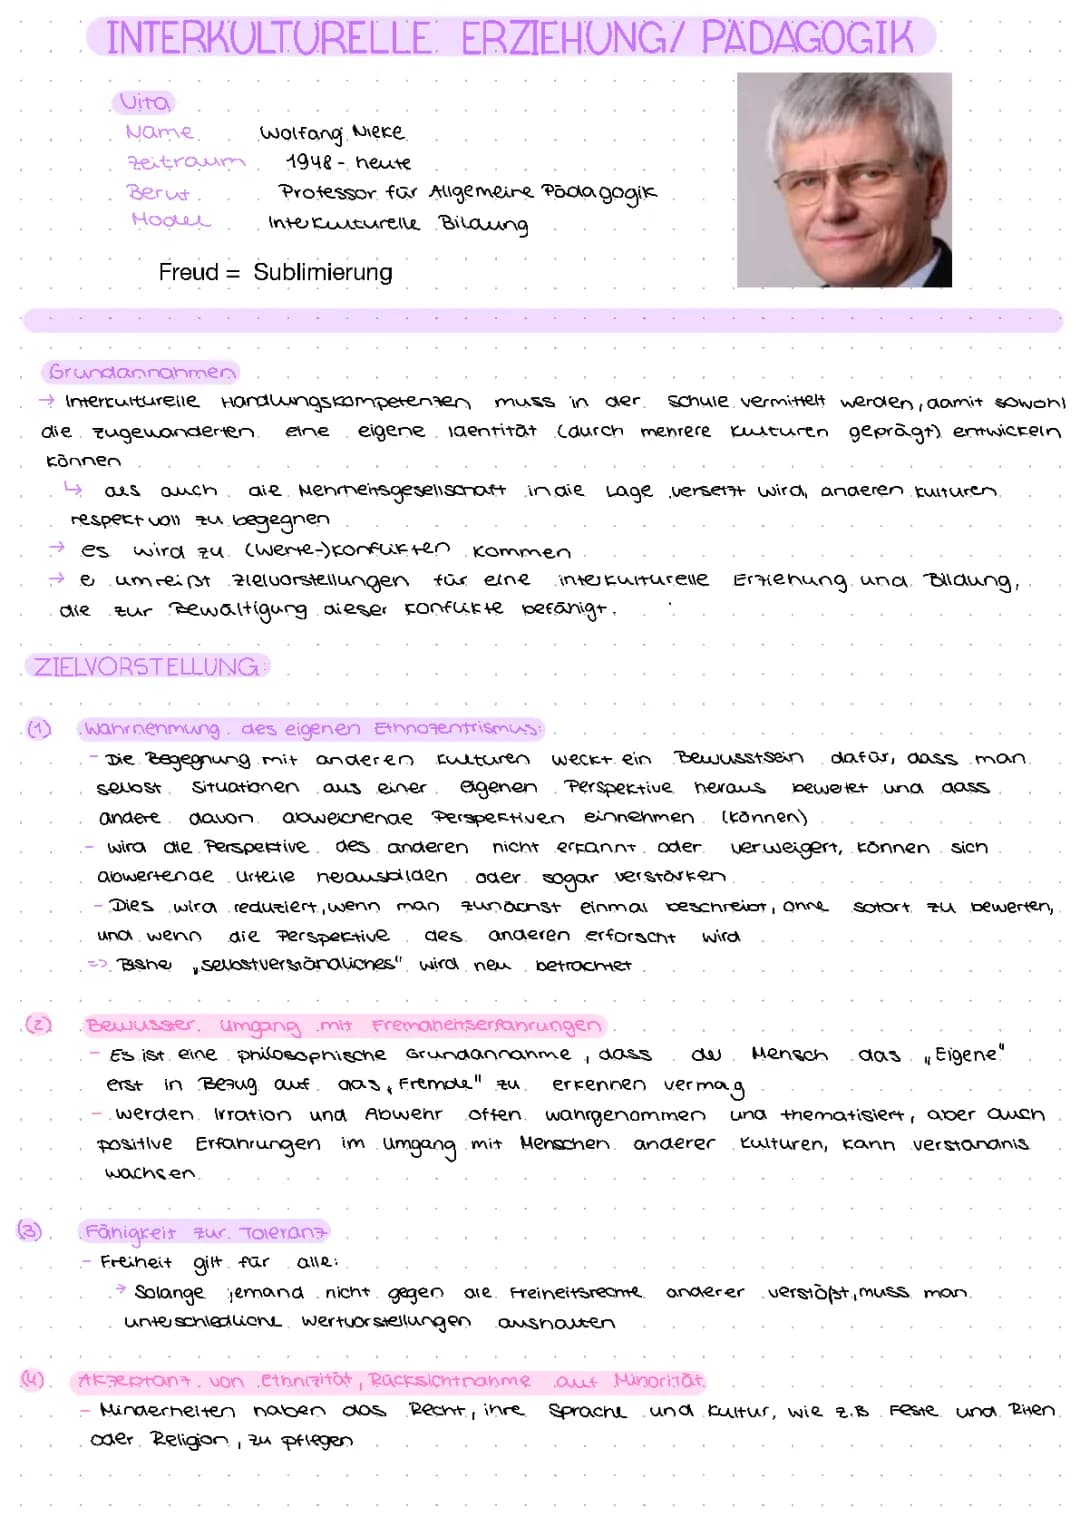 INTERKULTURELLE ERZIEHUNG/ PÄDAGOGIK
Vita
Name Wolfang Nieke
Zeitraum 1948 - heute
Beruf Professor für Allgemeine Pädagogik
Modell Interkulturelle Bildung
Freud = Sublimierung
Grundannahmen
→ Interkulturelle Handlungskompetenzen muss in der Schule vermittelt werden, damit sowohl
die zugewanderten eine eigene Identität (durch mehrere Kulturen geprägt) entwickeln
können
↳ als auch die Mehrheitsgesellschaft in die Lage versetzt wird, anderen Kulturen
respektvoll zu begegnen
→ es wird zu (Werte-)konflikten kommen
→ e umreißt Zielvorstellungen für eine interkulturelle Erziehung und Bildung,
die zur Bewältigung dieser Konflikte befähigt.
ZIELVORSTELLUNG:
(1) Wahrnehmung des eigenen Ethnozentrismus:
- Die Begegnung mit anderen Kulturen weckt ein Bewusstsein dafür, dass man
selbst Situationen aus einer eigenen Perspektive heraus bewertet und dass
andere davon abweichende Perspektiven einnehmen (können)
- wird die Perspektive des anderen nicht erkannt oder verweigert, können sich
abwertende Urteile herausbilden oder sogar verstärken
- Dies wird reduziert, wenn man zunächst einmal beschreibt, ohne sofort zu bewerten,
und wenn die Perspektive des anderen erforscht wird
=> Bishe „selbstverständliches" wird neu betrachtet
(2) Bewusster Umgang mit Fremdheitserfahrungen
- Es ist eine philosophische Grundannahme, dass der Mensch das „Eigene"
erst in Bezug auf das „Fremde" zu erkennen vermag
- werden Irration und Abwehr offen wahrgenommen und thematisiert, aber auch
positive Erfahrungen im Umgang mit Menschen anderer Kulturen, kann verständnis
wachsen
(3) Fähigkeit zur Toleranz
- Freiheit gilt für alle:
→ Solange jemand nicht gegen die Freiheitsrechte anderer verstößt, muss man
unterschiedliche Wertvorstellungen aushalten
(4) Akzeptanz von ethnizität, Rücksichtnahme auf Minorität
- Minderheiten haben das Recht, ihre Sprache und Kultur, wie z.B Feste und Riten
oder Religion, zu pflegen